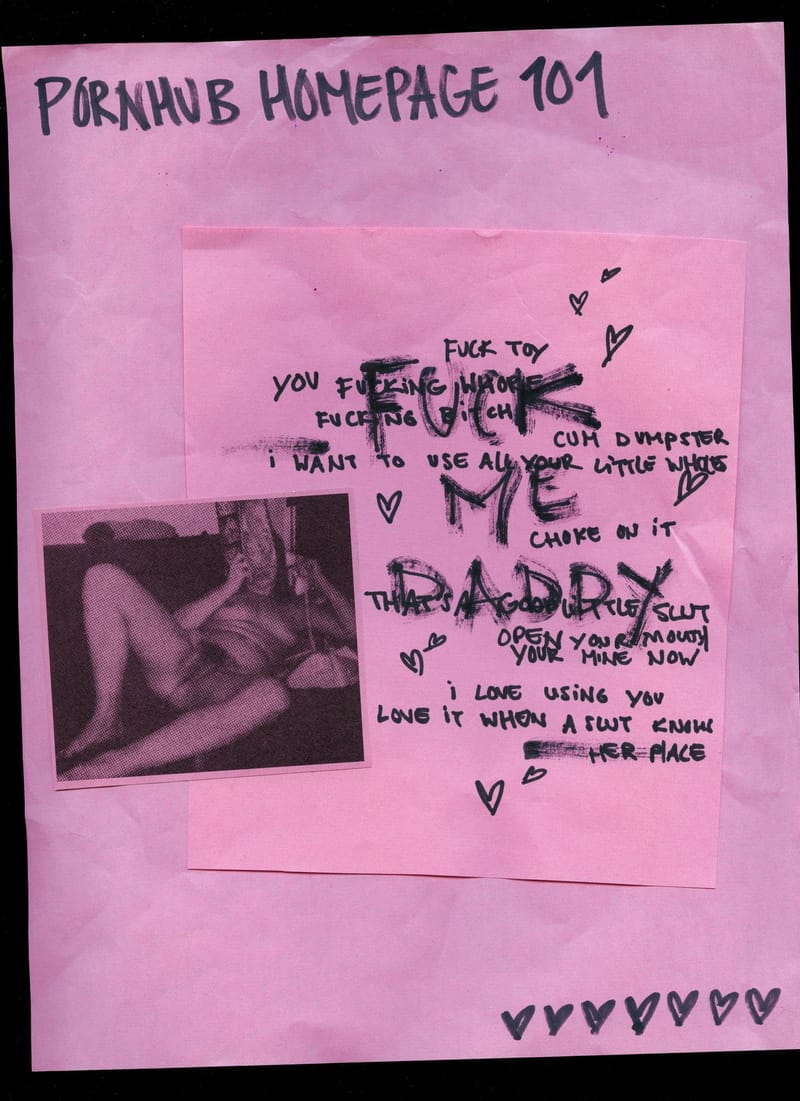 PORNHUB HOMEPAGE 101
FUCK TOY
YOU FUCKING WHORE
FUCK
FUCKING BITCH
CUM DUMPSTER
i WANT TO USE ALL YOUR LITTLE WHOLES
ME
CHOKE ON iT
DADDY
THAT'S A GOOD LITTLE SLUT
OPEN YOUR MOUTH
YOUR MINE NOW
i LOVE USING YOU
LOVE IT WHEN A SLUT KNOW
HER PLACE